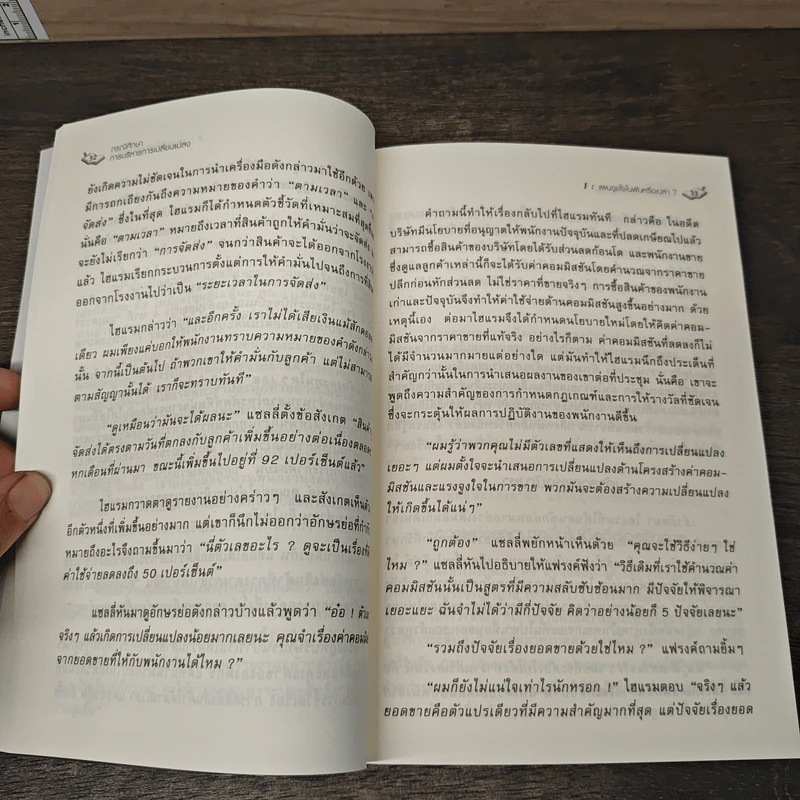 inches
1
2
32
กรณีศึกษา
การบริหารการเปลี่ยนแปลง
ยังเกิดความไม่ชัดเจนในการนำเครื่องมือดังกล่าวมาใช้อีกด้วย
มีการถกเถียงกันถึงความหมายของคำว่า “ตามเวลา” และ
จัดส่ง” ซึ่งในที่สุด ไฮแรมก็ได้กำหนดตัวชี้วัดที่เหมาะสมที่สุดขึ้น
นั่นคือ “ตามเวลา” หมายถึงเวลาที่สินค้าถูกให้คำมั่นว่าจะจัดส่ง
จะยังไม่เรียกว่า “การจัดส่ง” จนกว่าสินค้าจะได้ออกจากโรงงาน
แล้ว ไฮแรมเรียกกระบวนการตั้งแต่การให้คำมั่นไปจนถึงการที่
ออกจากโรงงานไปว่าเป็น “ระยะเวลาในการจัดส่ง”
ไฮแรมกล่าวว่า “และอีกครั้ง เราไม่ได้เสียเงินแม้สัก
เดียว ผมเพียงแค่บอกให้พนักงานทราบความหมายของคำดังกล่าว
นั้น จากนี้เป็นต้นไป ถ้าพวกเขาให้คำมั่นกับลูกค้า แต่ไม่สามารถ
ตามสัญญานั้นได้ เราก็จะทราบทันที”
“ดูเหมือนว่ามันจะได้ผลนะ” แชลลี่ตั้งข้อสังเกต “สินค้า
จัดส่งได้ตรงตามวันที่ตกลงกับลูกค้าเพิ่มขึ้นอย่างต่อเนื่องตลอด
หกเดือนที่ผ่านมา ขณะนี้เพิ่มขึ้นไปอยู่ที่ 92 เปอร์เซ็นต์แล้ว”
ไฮแรมกวาดตาดูรายงานอย่างคร่าวๆ และสังเกตเห็นตัว
อีกตัวหนึ่งที่เพิ่มขึ้นอย่างมาก แต่เขาก็นึกไม่ออกว่าอักษรย่อที่กำกับ
หมายถึงอะไรจึงถามขึ้นมาว่า “นี่ตัวเลขอะไร ? ดูจะเป็นเรื่อง
ค่าใช้จ่ายลดลงถึง 50 เปอร์เซ็นต์”
แชลลี่หันมาดูอักษรย่อดังกล่าวบ้างแล้วพูดว่า “อ๋อ !
จริงๆ แล้วเกิดการเปลี่ยนแปลงน้อยมากเลยนะ คุณจำเรื่องค่าคอมมิส
จากยอดขายที่ให้กับพนักงานได้ไหม ?”
1 : แผนจูงใจในฝันหรือเปล่า ?
33
คำถามนี้ทำให้เรื่องกลับไปที่ไฮแรมทันที กล่าวคือ ในอดีต
บริษัทมีนโยบายที่อนุญาตให้พนักงานปัจจุบันและที่ปลดเกษียณไปแล้ว
สามารถซื้อสินค้าของบริษัทโดยได้รับส่วนลดก้อนโต และพนักงานขาย
ซึ่งดูแลลูกค้าเหล่านี้ก็จะได้รับค่าคอมมิสชันโดยคำนวณจากราคาขาย
ปลีกก่อนหักส่วนลด ไม่ใช่ราคาที่ขายจริงๆ การซื้อสินค้าของพนักงาน
เก่าและปัจจุบันจึงทำให้ค่าใช้จ่ายด้านคอมมิสชันสูงขึ้นอย่างมาก ด้วย
เหตุนี้เอง ต่อมาไฮแรมจึงได้กำหนดนโยบายใหม่โดยให้คิดค่าคอม-
มิสชันจากราคาขายที่แท้จริง อย่างไรก็ตาม ค่าคอมมิสชันที่ลดลงก็ไม่
ได้มีจำนวนมากมายแต่อย่างใด แต่มันทำให้ไฮแรมนึกถึงประเด็นที่
สำคัญกว่านั้นในการนำเสนอผลงานของเขาต่อที่ประชุม นั่นคือ เขาจะ
พูดถึงความสำคัญของการกำหนดกฎเกณฑ์และการให้รางวัลที่ชัดเจน
ซึ่งจะกระตุ้นให้ผลการปฏิบัติงานของพนักงานดีขึ้น
“ผมรู้ว่าพวกคุณไม่มีตัวเลขที่แสดงให้เห็นถึงการเปลี่ยนแปลง
เยอะๆ แต่ผมตั้งใจจะนำเสนอการเปลี่ยนแปลงด้านโครงสร้างค่าคอม-
มิสชันและแรงจูงใจในการขาย พวกมันจะต้องสร้างความเปลี่ยนแปลง
ให้เกิดขึ้นได้แน่ๆ”
“ถูกต้อง” แชลลี่พยักหน้าเห็นด้วย “คุณจะใช้วิธีง่ายๆ ใช่
ไหม ?” แชลลี่หันไปอธิบายให้แฟรงค์ฟังว่า “วิธีเดิมที่เราใช้คำนวณค่า
คอมมิสชันนั้นเป็นสูตรที่มีความสลับซับซ้อนมาก มีปัจจัยให้พิจารณา
เยอะแยะ ฉันจำไม่ได้ว่ามีกี่ปัจจัย คิดว่าอย่างน้อยก็ 5 ปัจจัยเลยนะ”
“รวมถึงปัจจัยเรื่องยอดขายด้วยใช่ไหม ?” แฟรงค์ถามยิ้มๆ
“ผมก็ยังไม่แน่ใจเท่าไรนักหรอก !” ไฮแรมตอบ “จริงๆ แล้ว
ยอดขายคือตัวแปรเดียวที่มีความสำคัญมากที่สุด แต่ปัจจัยเรื่องยอด